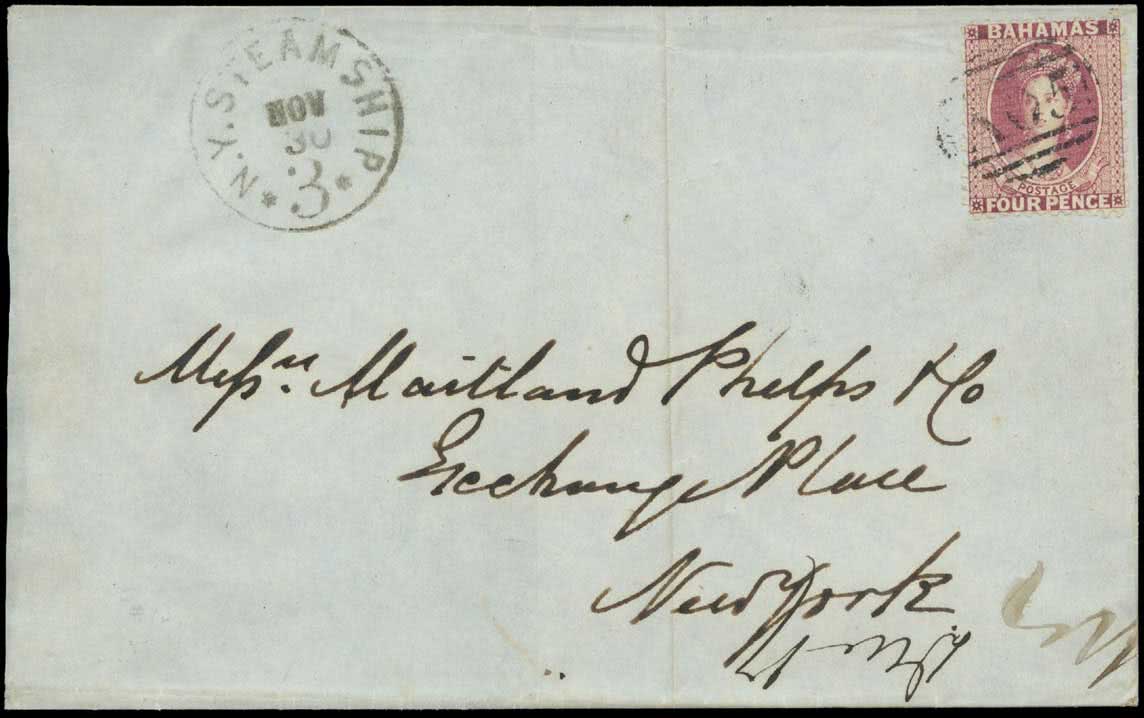 N.Y. STEAMSHIP
NOV
30
* 3 *
BAHAMAS
A05
POSTAGE
FOUR PENCE
Messrs. Maitland Phelps & Co
Exchange Place
New York